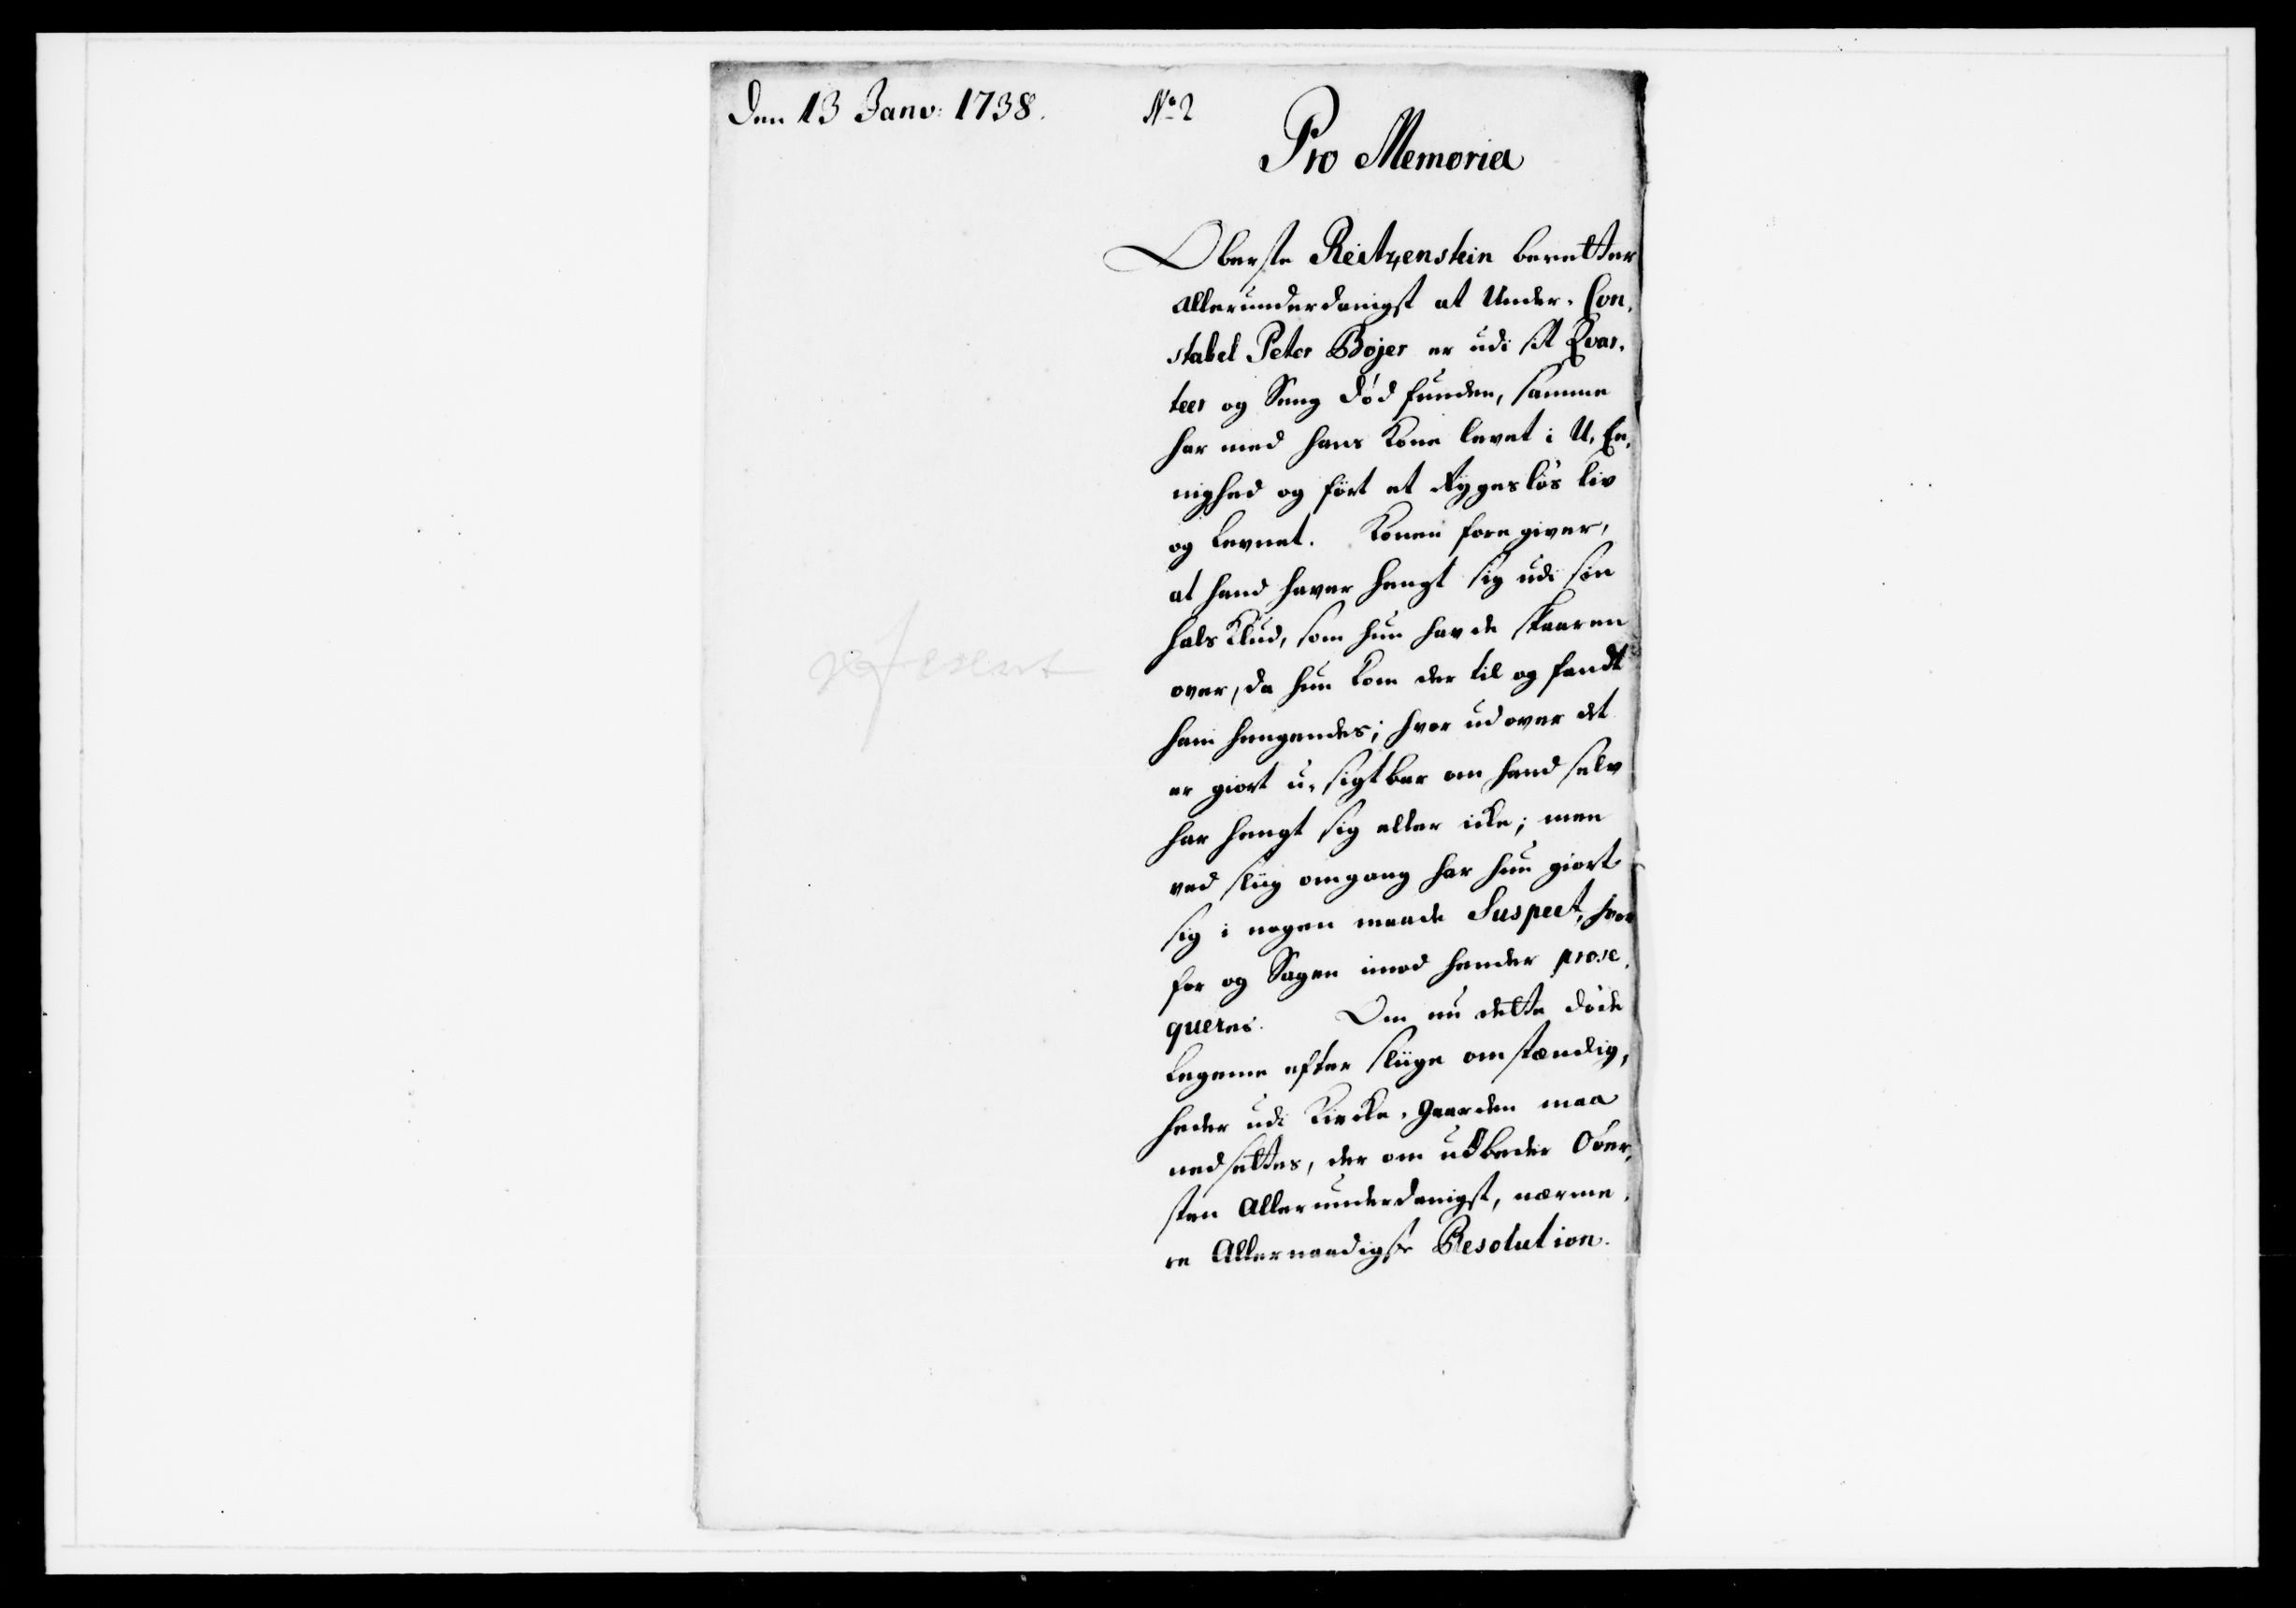 Den 13 Janv: 1738.
No 2
Pro Memoria
Oberste Reitzenstein beretter
Allerunderdanigst at Under-Con-
stabel Peter Bøjer er udi sit Qvar-
teer og Seng død funden, samme
har med hans Kone levet i U-En-
nighed og ført et Rygesløs liv
og levnet. Konen foregiver,
at hand haver hengt sig udi sin
hals Klud, som hun havde skaaren
over, da hun kom der til og fandt
ham hengendes; hvor udover det
er giort u-sigtbar om hand selv
har hengt sig eller icke; men
ved sliig omgang har hun giort
sig i nogen maade Suspect, hvor
for og Sagen imod hender prose-
queres. Om nu dette døde
Legeme efter sliige omstændig-
heder udi Kircke-Gaarden maa
nedsettes, der om udbeder Ober-
sten Allerunderdanigst, nærme-
re Allernaadigste Resolution.